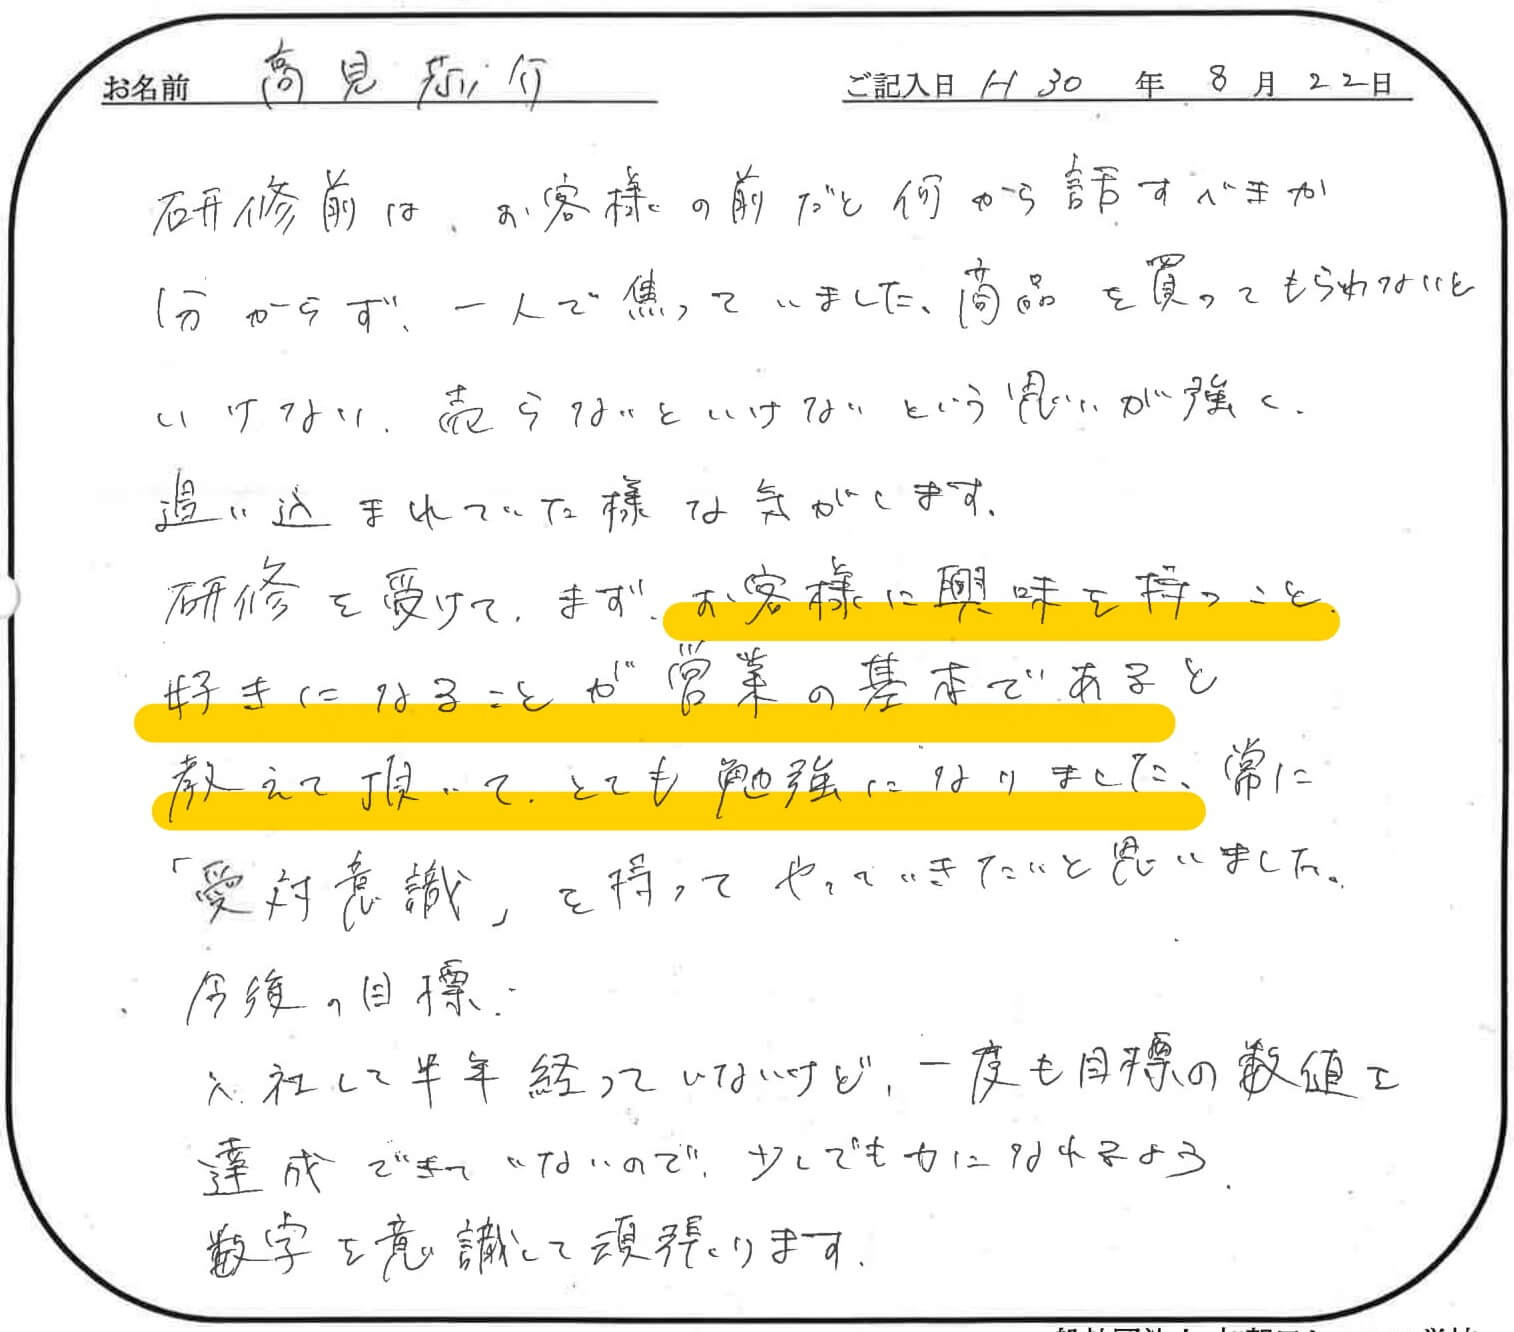 お名前 高見 恭介 ご記入日 H30 年 8 月 22日
研修前は、お客様の前だと何から話すべきか
分からず、一人で焦っていました、商品を買ってもらわないと
いけない、売らないといけないという思いが強く、
追い込まれていた様な気がします。
研修を受けて、まず、お客様に興味を持つこと、
好きになることが営業の基本であると
教えて頂いて、とても勉強になりました、常に
「愛対意識」を持ってやっていきたいと思いました。
今後の目標、
入社して半年経っていないけど、一度も目標の数値を
達成できていないので、少しでも力になれるよう、
数字を意識して頑張ります。